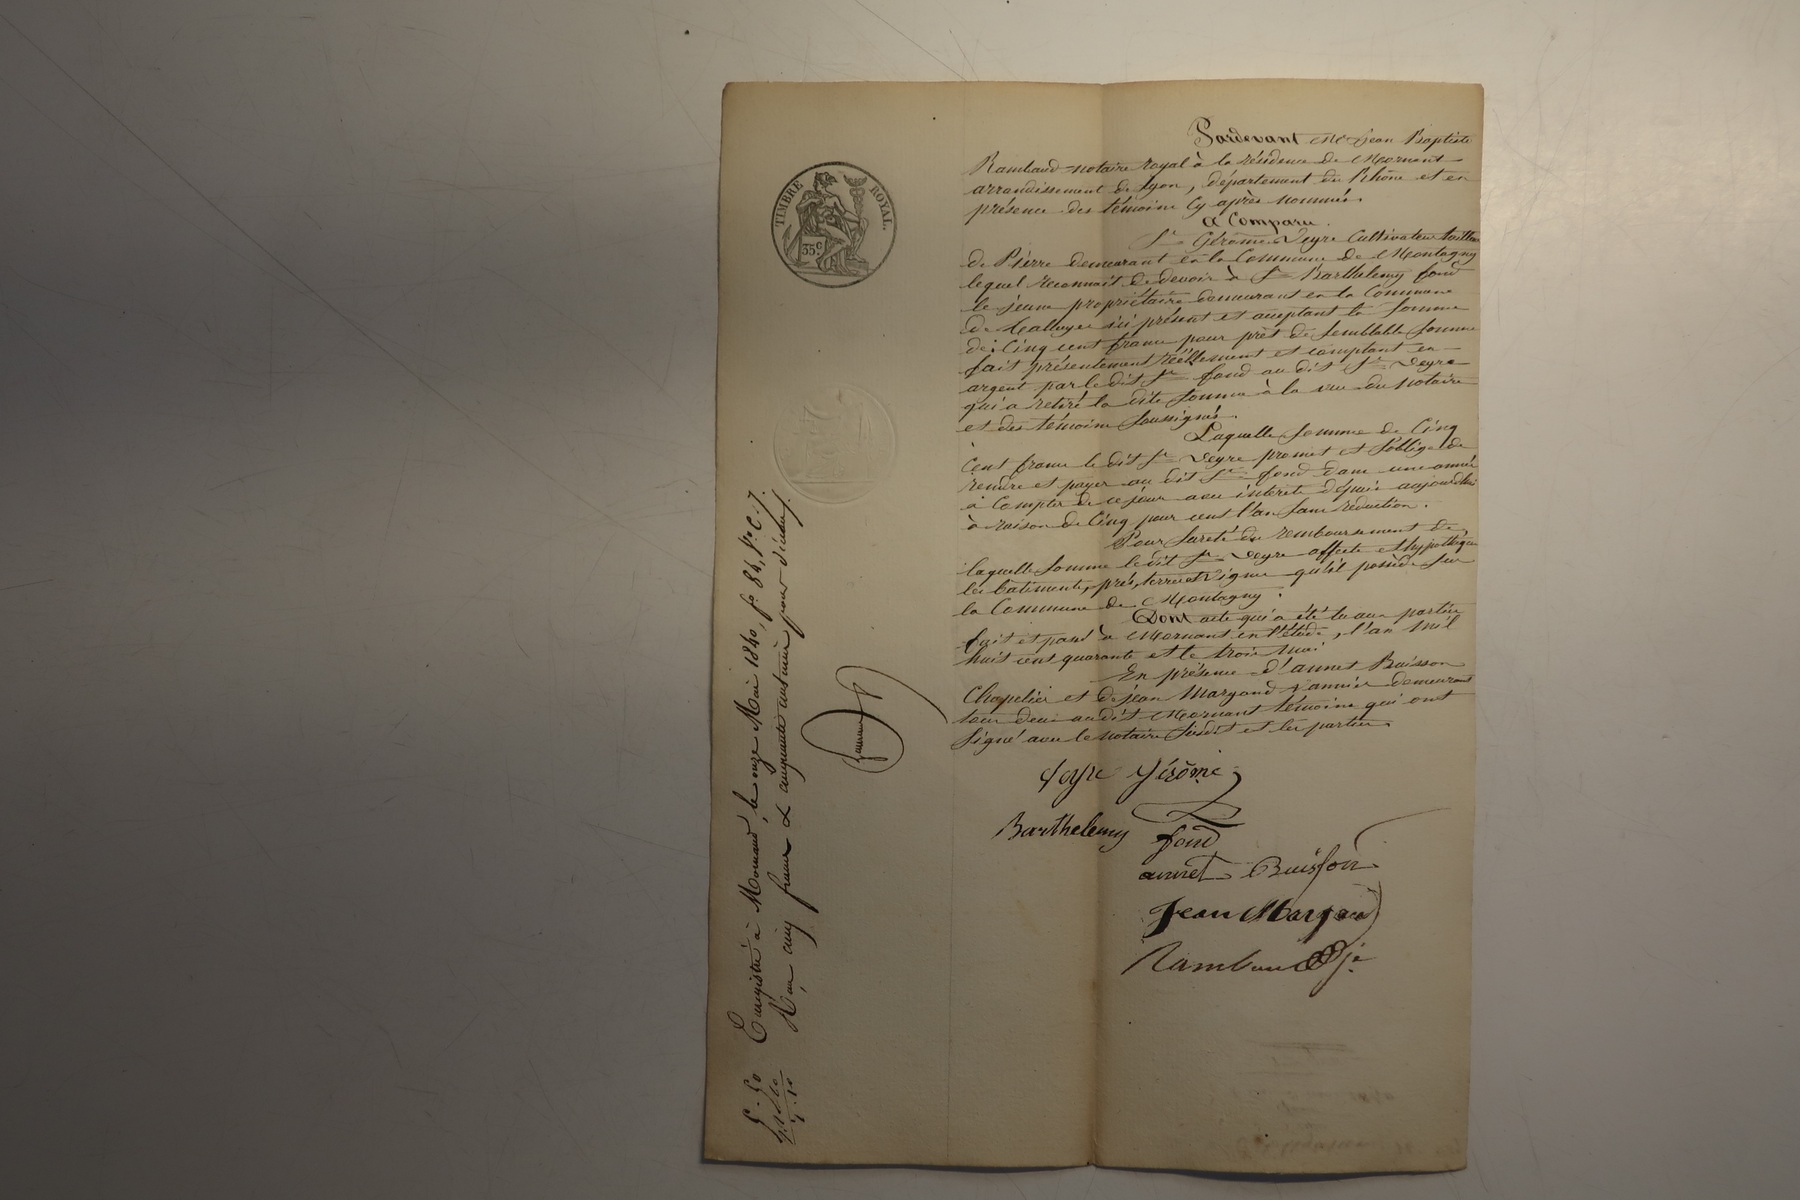 TIMBRE ROYAL.
35 c.
Pardevant Me Jean Baptiste
Rambaud notaire royal à la résidence de Mornant
arrondissement de Lyon, département du Rhône et en
présence des témoins cy après nommés.
a Comparu.
Sr Gérôme Veyre Cultivateur
de Pierre demeurant en la Commune de Montagny
lequel reconnait de devoir à Sr Barthelemy fond
le jeune propriétaire demeurant en la Commune
de ici présent et acceptant la Somme
de Cinq cent francs pour prêt de Semblable Somme
fait présentement réèllement et comptant en
argent par le dit Sr fond au dit Sr Veyre
qui a retiré la dite Somme à la vue du notaire
et des témoins Soussignés.
Laquelle Somme de Cinq
Cent francs le dit Sr Veyre promet et S'oblige de
rendre et payer au dit Sr fond dans une année
à Compter de ce jour avec intérêts dépuis aujourd'hui
à raison de Cinq pour cent l'an Sans réduction.
Pour Sureté du remboursement de
laquelle Somme le dit Sr Veyre affecte et hypothèque
les batiments, prés, terres et Vignes qu'il posséde Sur
la Commune de Montagny.
Dont acte qui a été lu aux parties
fait et passé à Mornant en l'étude, l'an Mil
huit cent quarante et le trois Mai
En présence d'annet Buisson
Chapelier et de jean Margand Vannier demeurant
tous deux au dit Mornant témoins qui ont
Signé avec le notaire Susdit et les parties.
Veyre Gérôme
Barthelemy fond
annet Buisson
Jean Margand
Rambaud
Enregistré à Mornant, le onze Mai 1840, fo 84, Ro C. 7.
Reçu cinq francs & cinquante centimes pour décimes.
5. 50